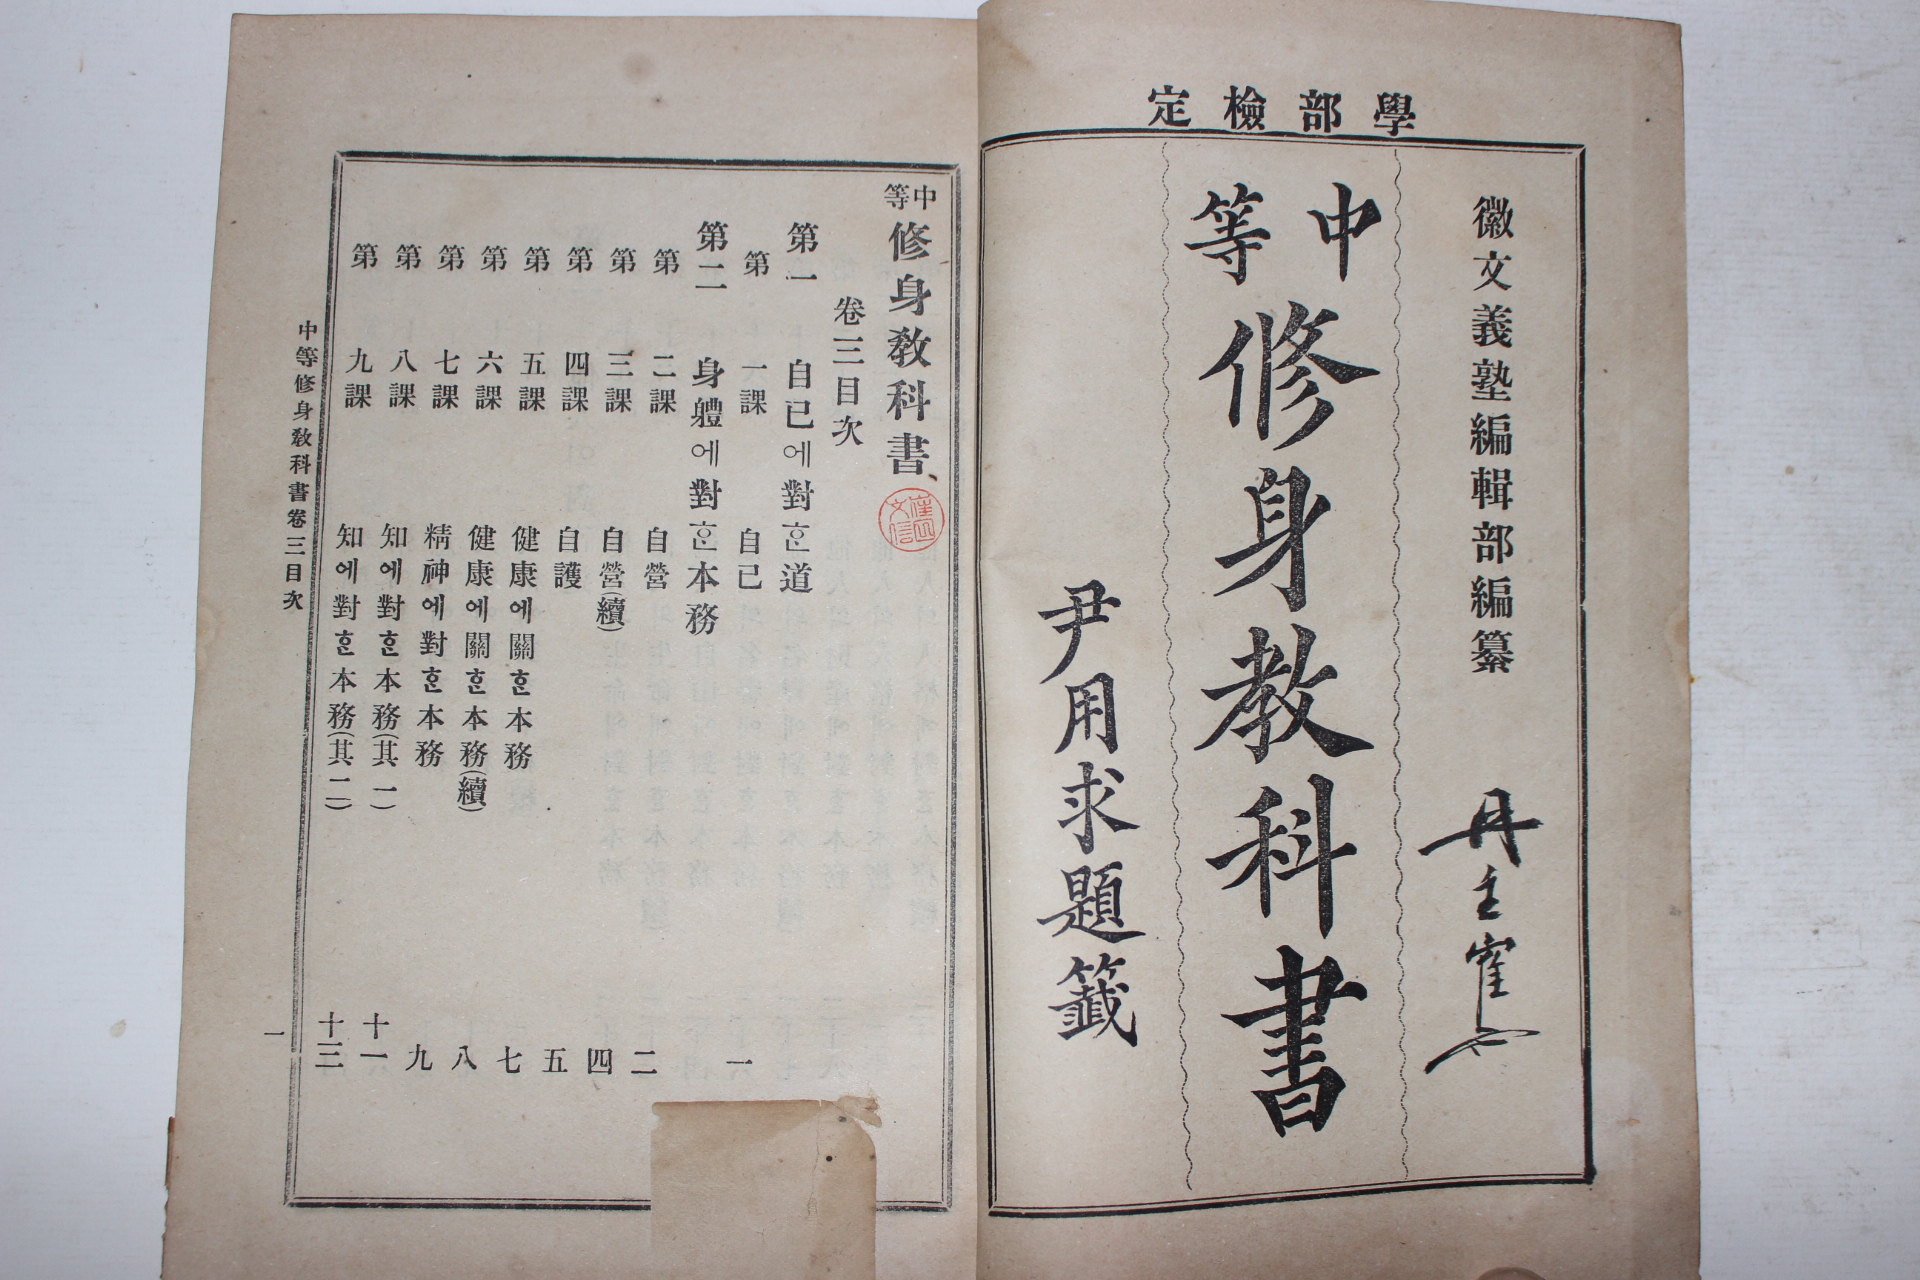 學部檢定
徽文義塾編輯部編纂
中等修身教科書
尹用求題籤
中等修身敎科書
卷三目次
第一 自己에對ᄒᆞᆫ道
第一課 自己 一
第二 身體에對ᄒᆞᆫ本務
第二課 自營 二
第三課 自營(續) 四
第四課 自護 五
第五課 健康에關ᄒᆞᆫ本務 七
第六課 健康에關ᄒᆞᆫ本務(續) 八
第七課 精神에對ᄒᆞᆫ本務 九
第八課 知에對ᄒᆞᆫ本務(其一) 十一
第九課 知에對ᄒᆞᆫ本務(其二) 十三
中等修身敎科書卷三目次 一